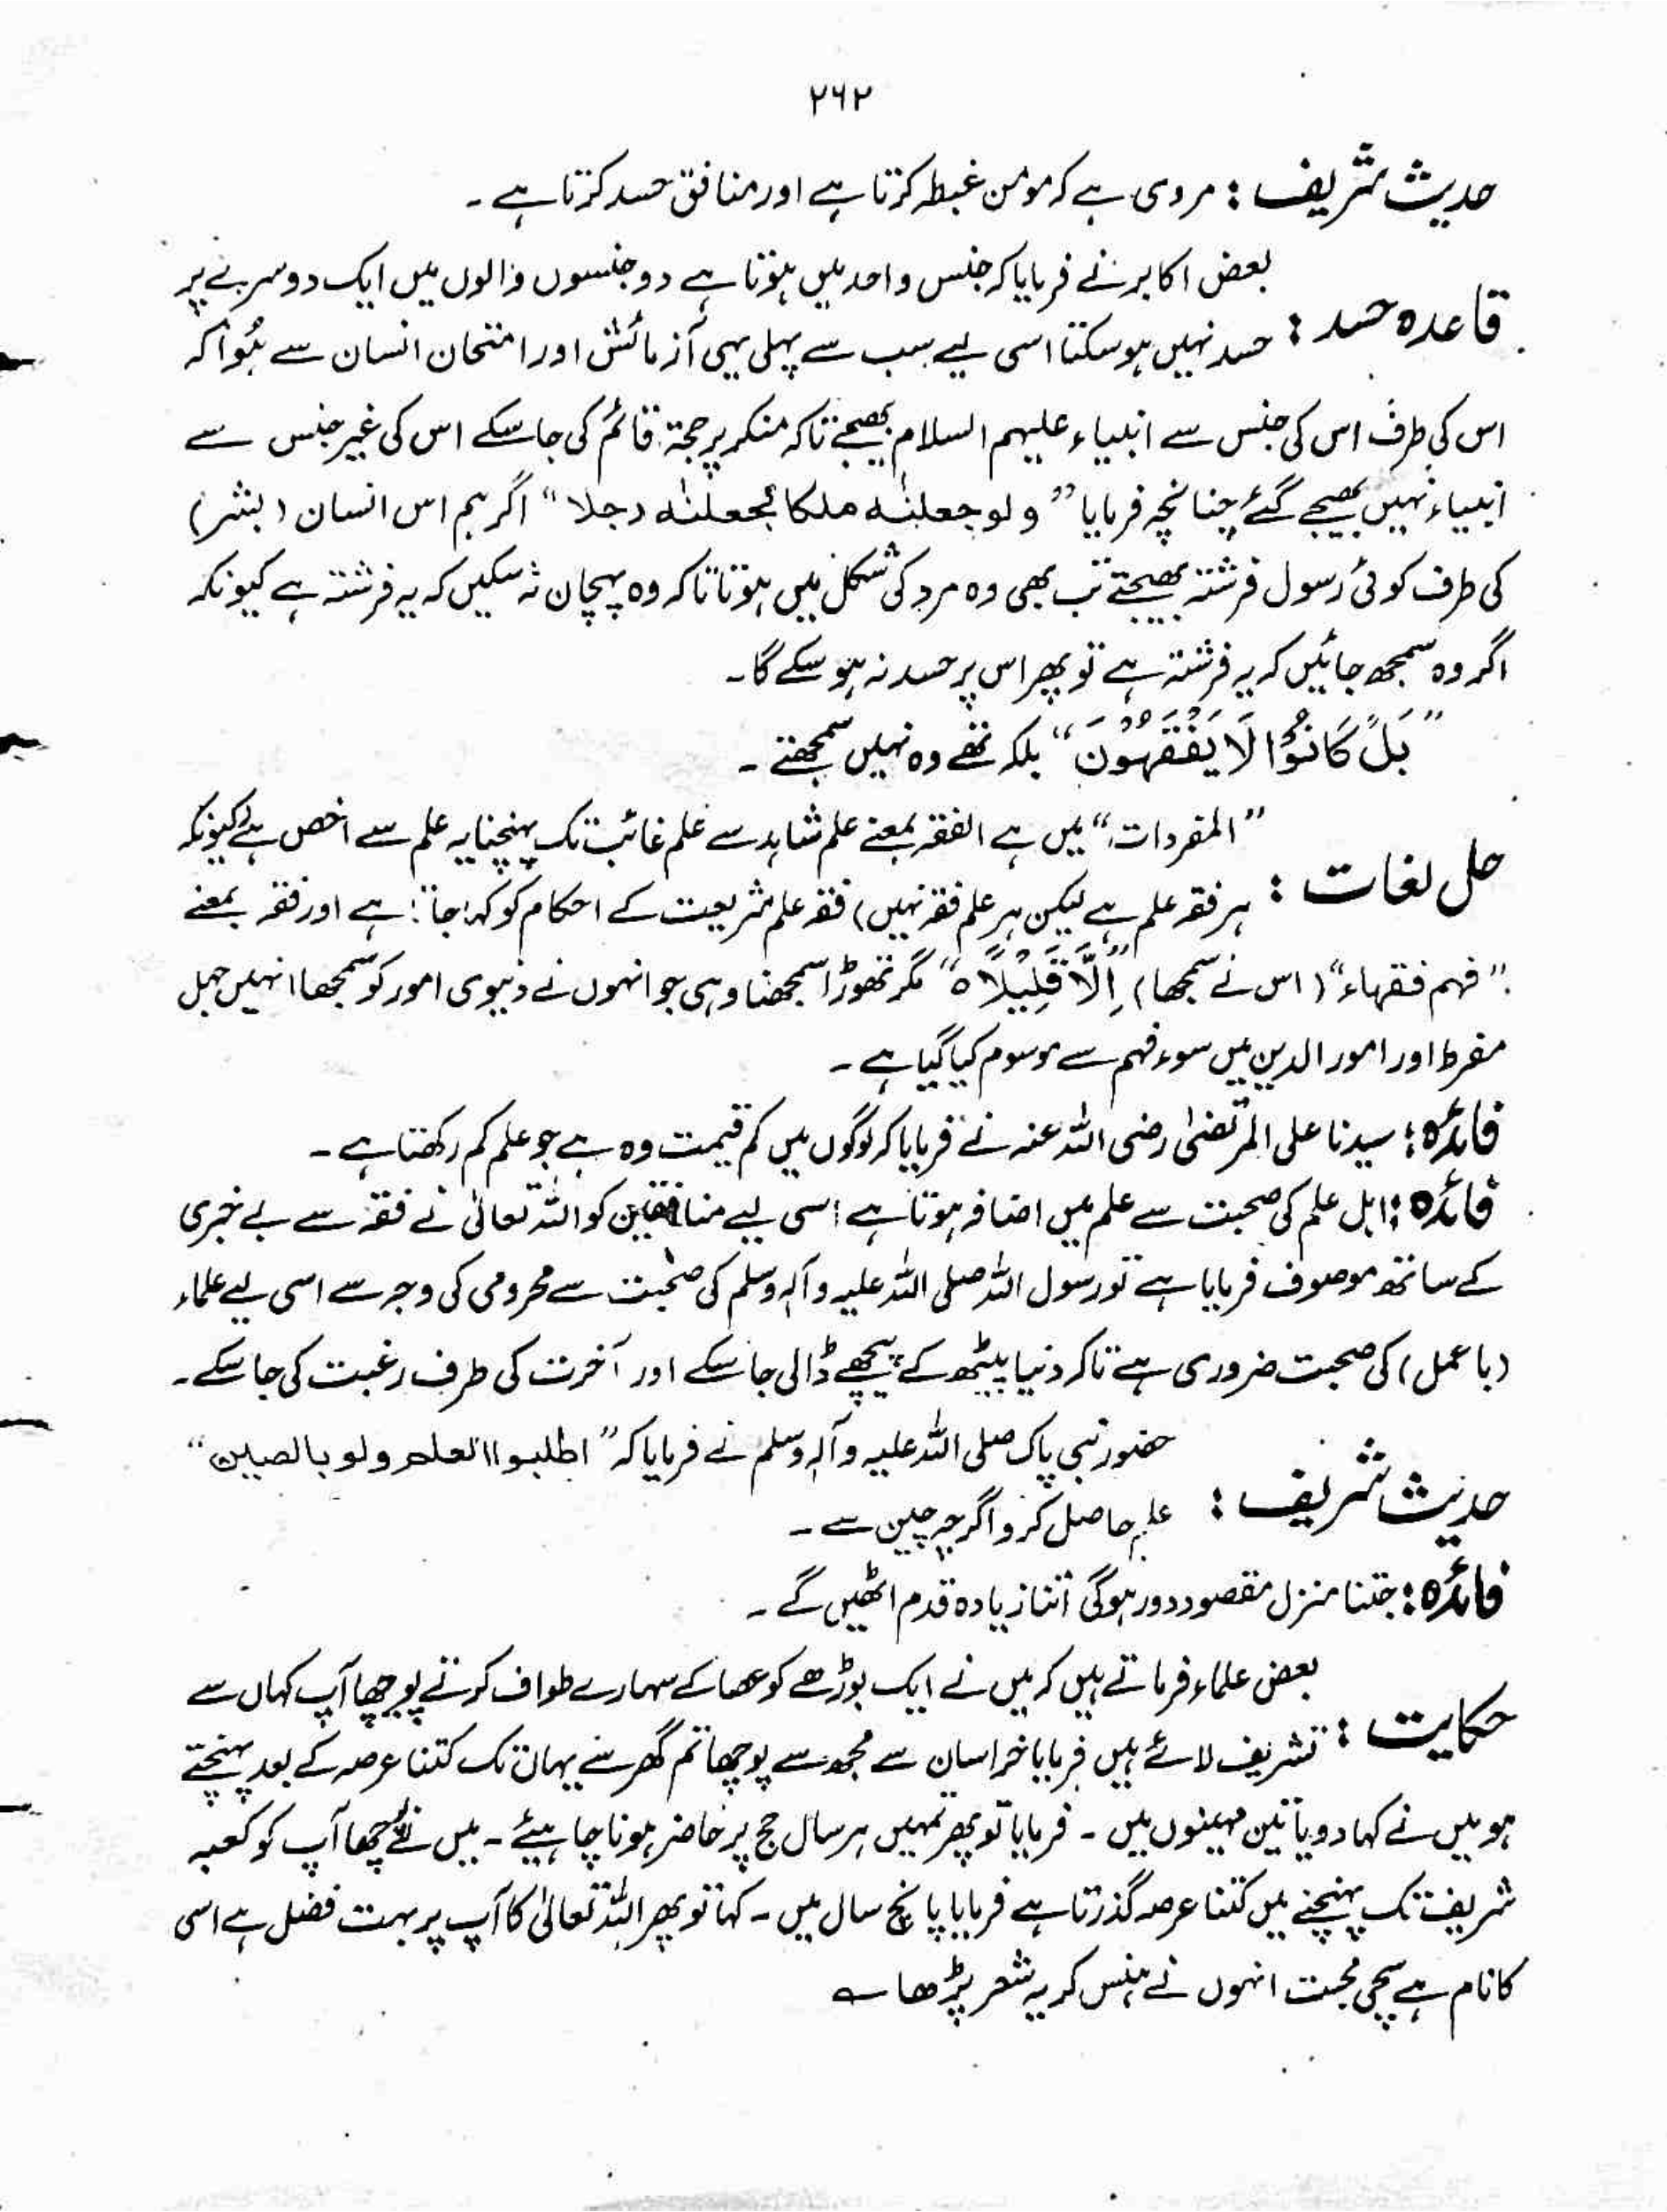 ۲۶۲
حدیث شریف : مروی ہے کہ مومن غبطہ کرتا ہے اور منافق حسد کرتا ہے ۔
بعض اکابر نے فرمایا کہ جنس واحد میں ہوتا ہے دو جنسوں والوں میں ایک دوسرے پر
قاعدہ حسد : حسد نہیں ہو سکتا اسی لیے سب سے پہلی یہی آزمائش اور امتحان انسان سے ہُوا کہ
اس کی طرف اس کی جنس سے انبیاء علیہم السلام بھیجے تاکہ منکر پر حجۃ قائم کی جا سکے اس کی غیر جنس سے
انبیاء نہیں بھیجے گئے چنانچہ فرمایا ” ولو جعلنٰه ملکا لجعلنٰه رجلا “ اگر ہم اس انسان (بشر)
کی طرف کوئی رسول فرشتہ بھیجتے تب بھی وہ مرد کی شکل میں ہوتا تاکہ وہ پہچان نہ سکیں کہ یہ فرشتہ ہے کیونکہ
اگر وہ سمجھ جائیں کہ یہ فرشتہ ہے تو پھر اس پر حسد نہ ہو سکے گا ۔
” بَلْ كَانُوْا لَا يَفْقَهُوْنَ “ بلکہ تھے وہ نہیں سمجھتے ۔
” المفردات “ میں ہے الفقہ بمعنے علم شاہد سے علم غائب تک پہنچنا یہ علم سے اخص ہے کیونکہ
حل لغات : ہر فقہ علم ہے لیکن ہر علم فقہ نہیں) فقہ علم شریعت کے احکام کو کہا جاتا ہے اور فقہ بمعنے
” فہم فقہاء “ (اس نے سمجھا) ” اِلَّا قَلِيْلًا ہ “ مگر تھوڑا سمجھنا وہی جو انہوں نے دنیوی امور کو سمجھا انہیں جہل
مفرط اور امور الدین میں سوء فہم سے موسوم کیا گیا ہے ۔
فائدہ : سیدنا علی المرتضیٰ رضی اللہ عنہ نے فرمایا کہ لوگوں میں کم قیمت وہ ہے جو علم کم رکھتا ہے ۔
فائدہ : اہل علم کی صحبت سے علم میں اضافہ ہوتا ہے اسی لیے منافقین کو اللہ تعالیٰ نے فقہ سے بے خبری
کے ساتھ موصوف فرمایا ہے تو رسول اللہ صلی اللہ علیہ وآلہ وسلم کی صحبت سے محرومی کی وجہ سے اسی لیے علماء
(با عمل) کی صحبت ضروری ہے تاکہ دنیا پیٹھ کے پیچھے ڈالی جا سکے اور آخرت کی طرف رغبت کی جا سکے ۔
حضور نبی پاک صلی اللہ علیہ وآلہ وسلم نے فرمایا کہ ” اطلبوا العلم ولو بالصین “
حدیث شریف : علم حاصل کرو اگرچہ چین سے ۔
فائدہ : جتنا منزل مقصود دور ہوگی اتنا زیادہ قدم اٹھیں گے ۔
بعض علماء فرماتے ہیں کہ میں نے ایک بوڑھے کو عصا کے سہارے طواف کرتے پوچھا آپ کہاں سے
حکایت : تشریف لائے ہیں فرمایا خراسان سے مجھ سے پوچھا تم گھر سے یہاں تک کتنا عرصہ کے بعد پہنچتے
ہو میں نے کہا دو یا تین مہینوں میں ۔ فرمایا تو پھر تمہیں ہر سال حج پر حاضر ہونا چاہیئے ۔ میں نے پوچھا آپ کو کعبہ
شریف تک پہنچنے میں کتنا عرصہ گذرتا ہے فرمایا پانچ سال میں ۔ کہا تو پھر اللہ تعالیٰ کا آپ پر بہت فضل ہے اسی
کا نام ہے سچی محبت انہوں نے ہنس کر یہ شعر پڑھا ؎